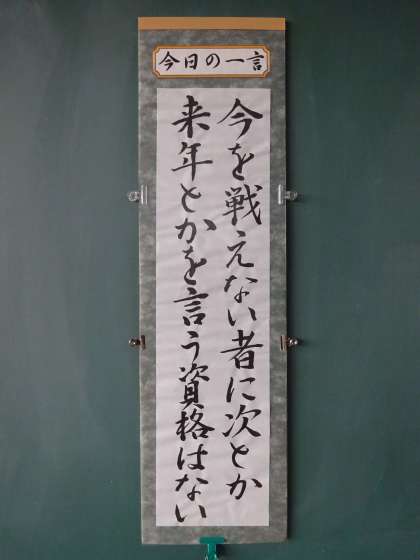 今日の一言
今を戦えない者に次とか
来年とかを言う資格はない